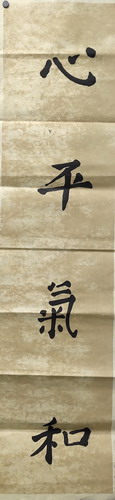 心平氣和